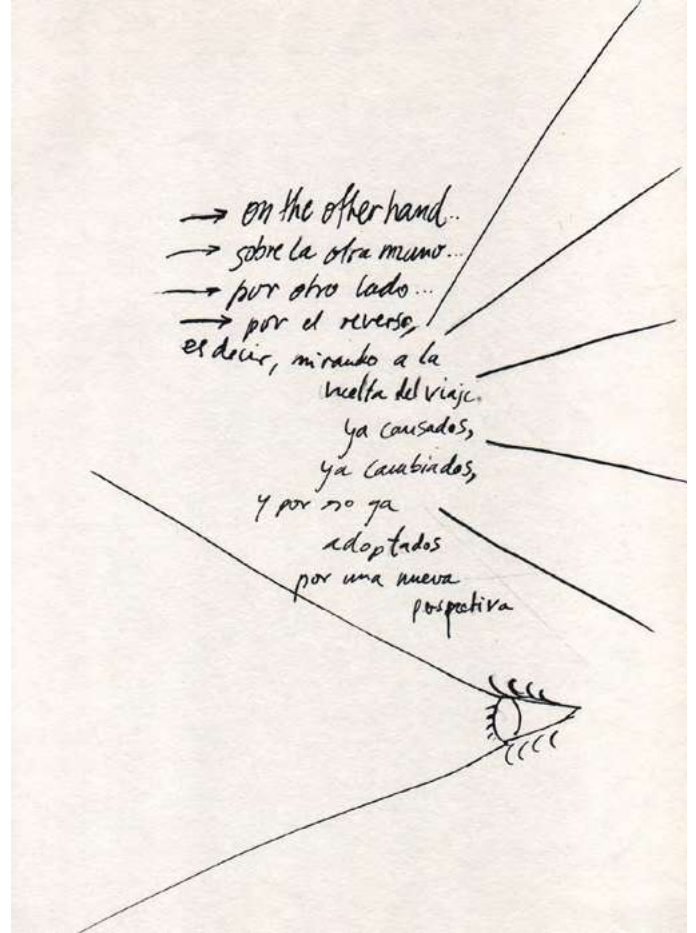 → on the other hand..
→ sobre la otra mano...
→ por otro lado...
→ por el reverso,
es decir, mirando a la
vuelta del viaje.
ya cansados,
ya cambiados,
y por eso ya
adoptados
por una nueva
perspectiva